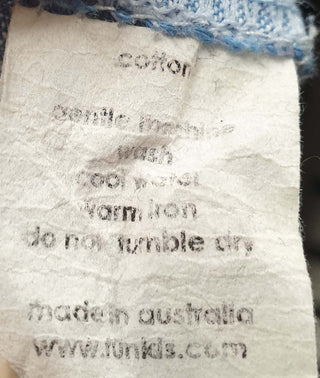 cotton
gentle machine
wash
cool water
warm iron
do not tumble dry
made in australia
www.funkids.com